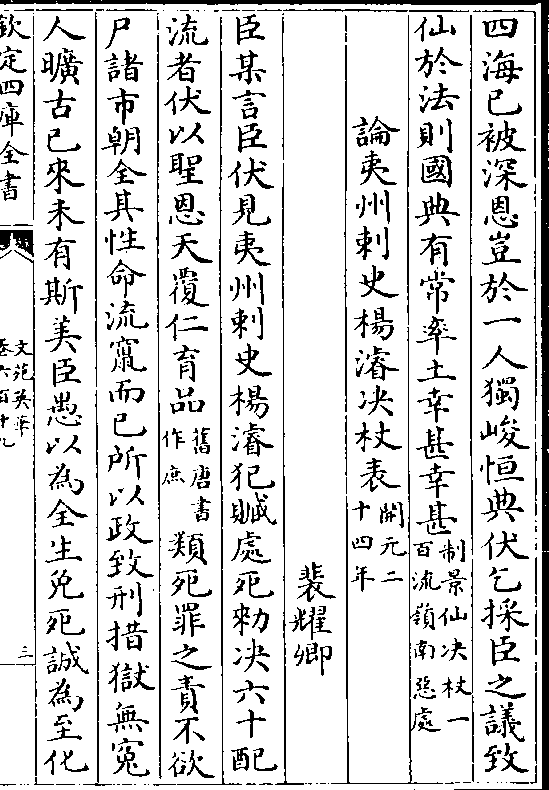 四海已被深恩豈於一人獨峻恒典伏乞採臣之議致
仙於法則國典有常率土幸甚幸甚制景仙决杖一百流嶺南惡處
論夷州刺史楊濬决杖表開元二十四年
裴耀卿
臣某言臣伏見夷州刺史楊濬犯贓處死勑决六十配
流者伏以聖恩天覆仁育品舊唐書作庶類死罪之責不欲
尸諸市朝全其性命流竄而已所以政致刑措獄無寃
人曠古已來未有斯美臣愚以為全生免死誠為至化
欽定四庫全書
文苑英華
卷六百十九
三